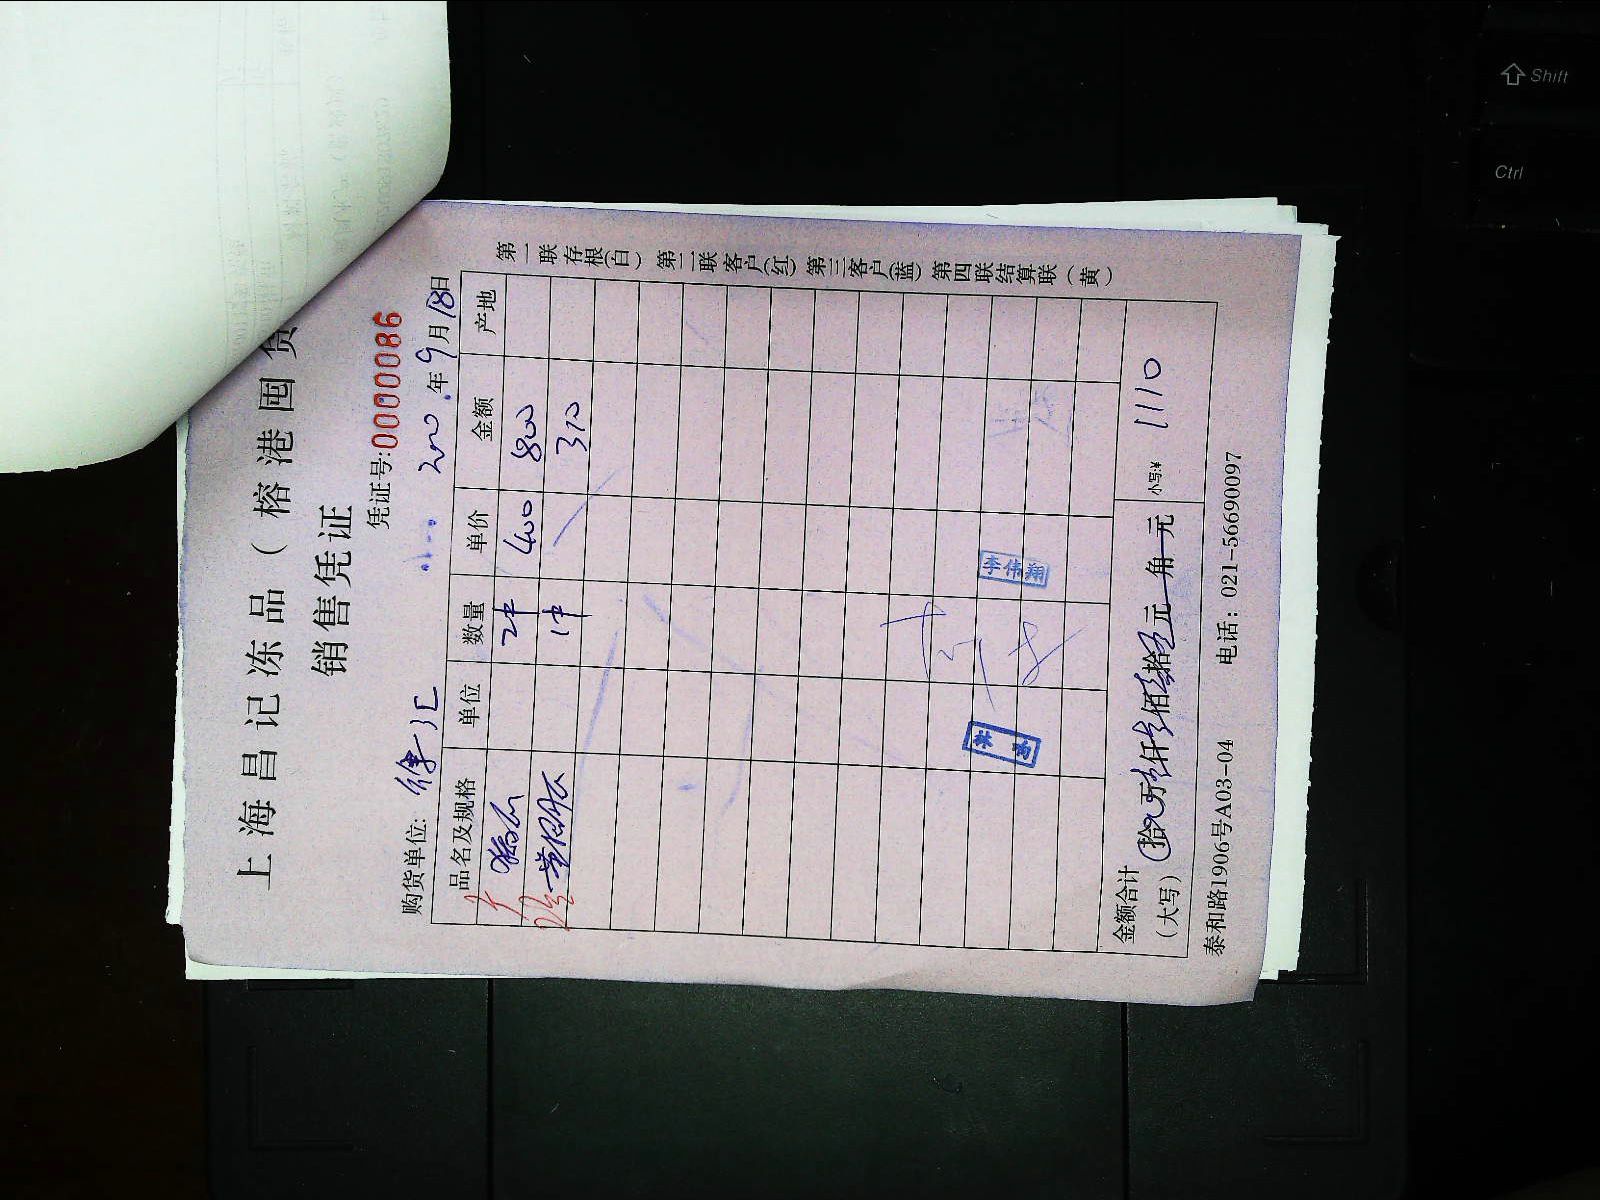 上海昌记冻品（榕港囤货
销售凭证
凭证号:0000086
购货单位: 徐汇 年9月18日
品名及规格 单位 数量 单价 金额 产地
2件 400 800
1件 310
李伟翔
金额合计 (大写) 拾 万 仟 佰 拾 元 角 元 小写:¥ 1110
泰和路1906号A03-04 电话: 021-56690097
第一联存根(白) 第二联客户(红) 第三客户(蓝) 第四联结算联(黄)
Shift
Ctrl